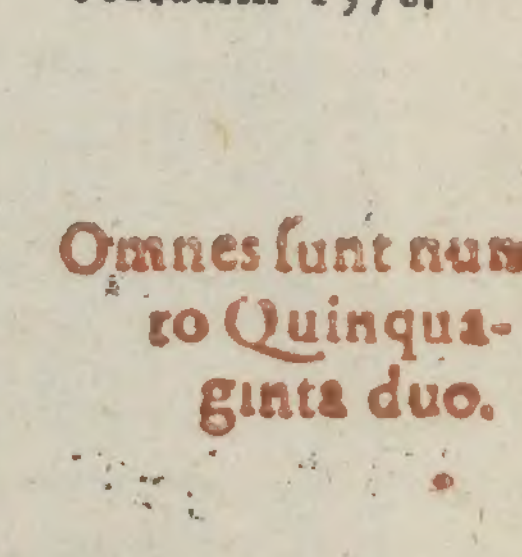 Omnes ſunt num
ro Quinqua-
ginta duo.